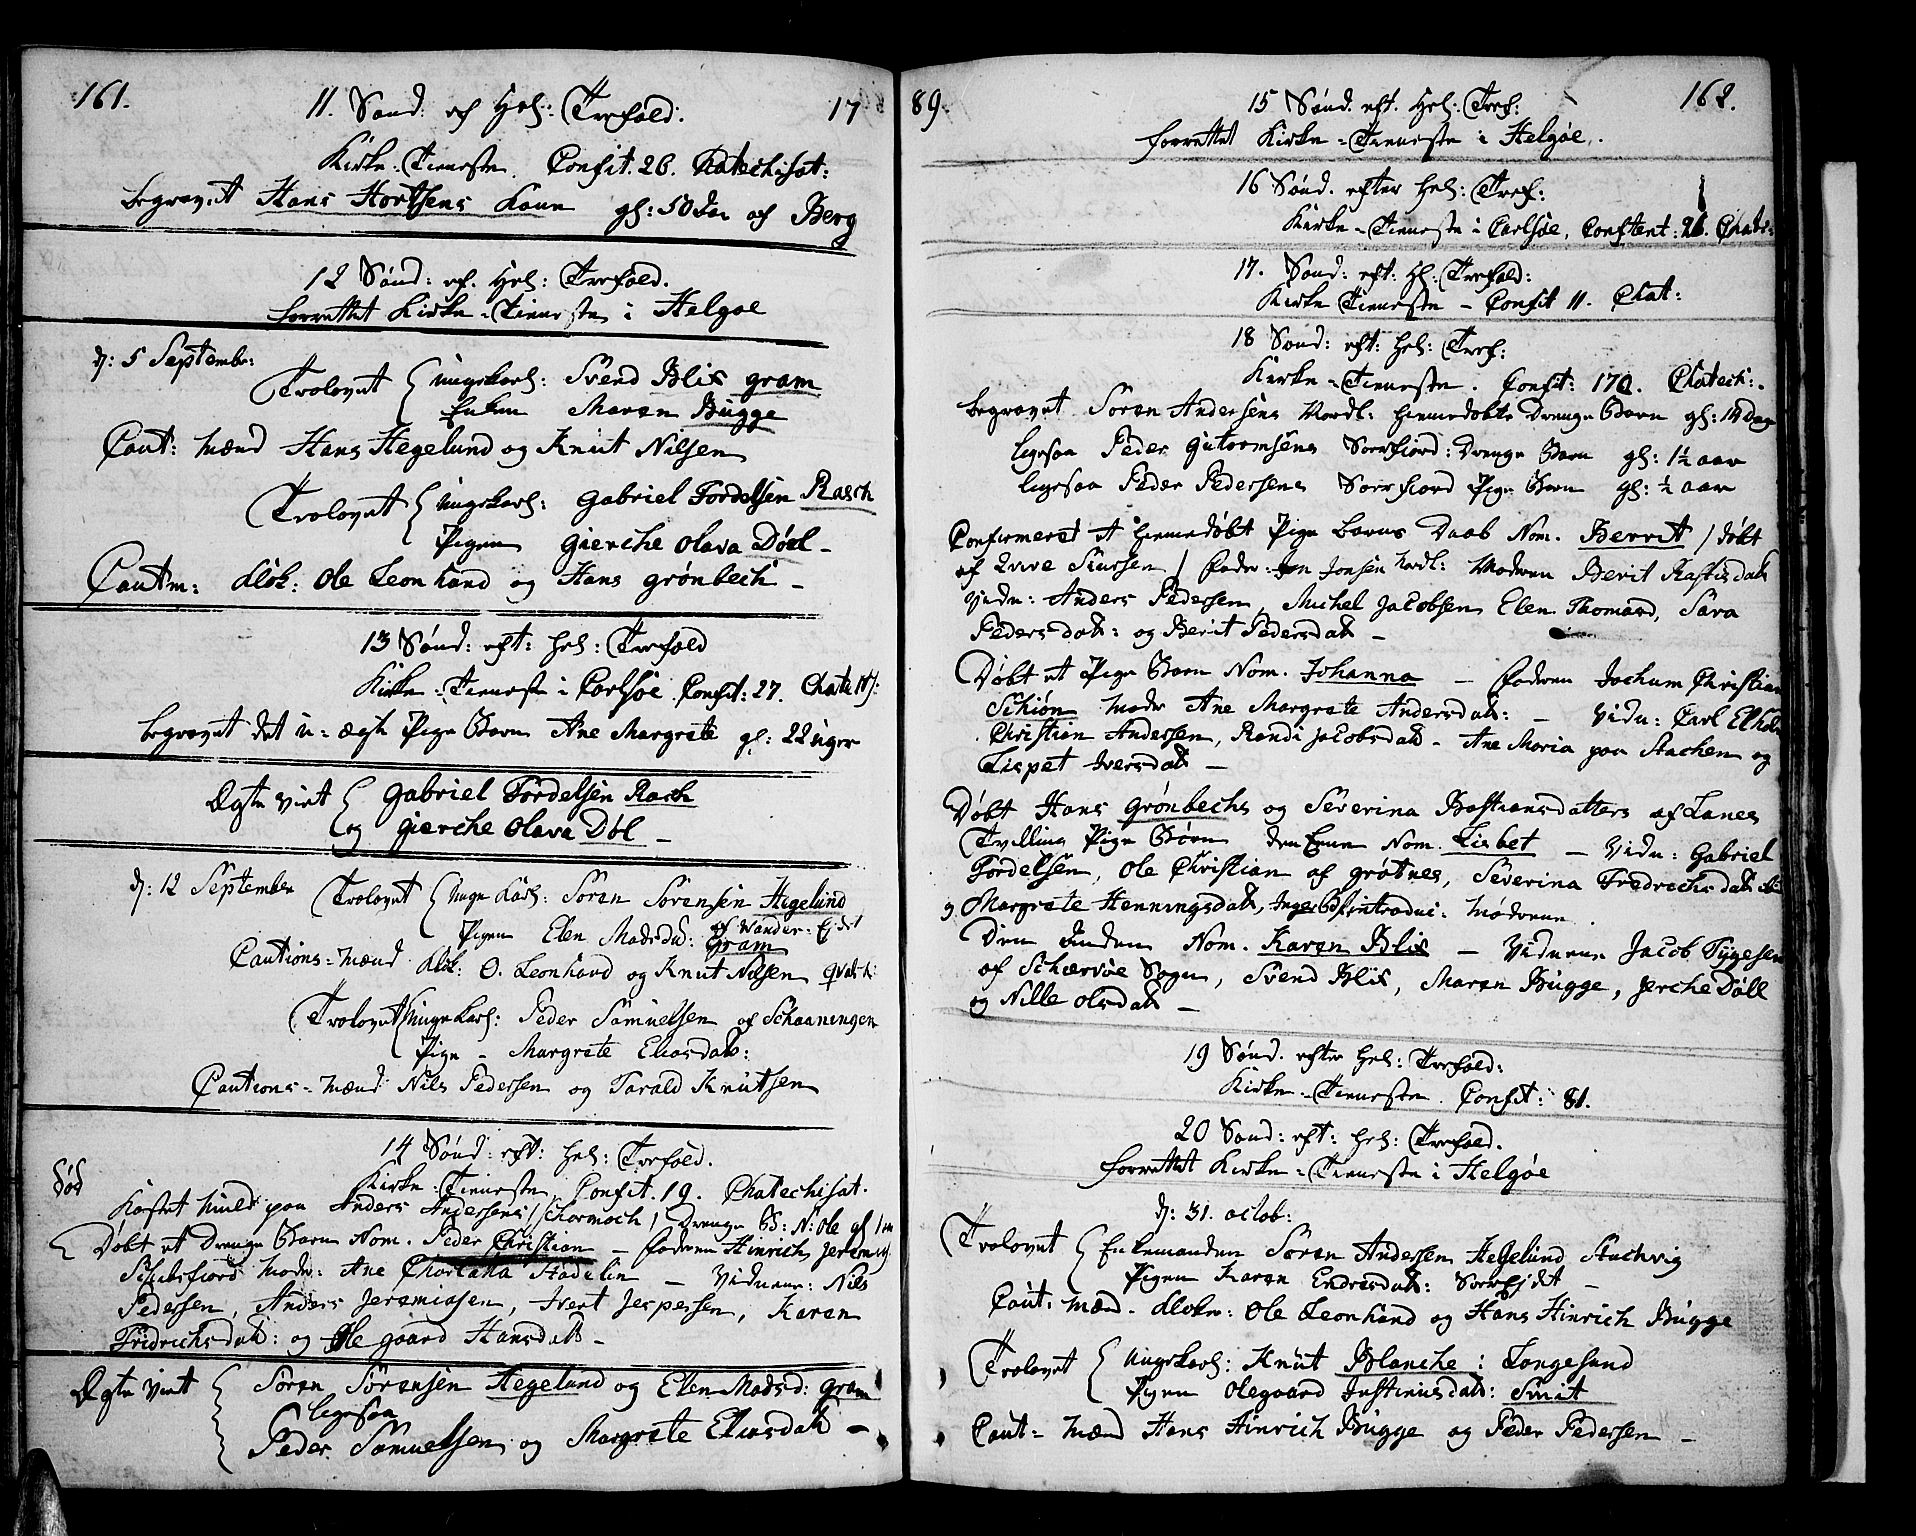 161.
11. Sønd: ef Hel: Trefold.
17
Kirke-Tieneste. Confit. 26. Katechisat:
begravet Hans Hortsens Kone gl: 50 Aar af Berg
12 Sønd: ef. Hel: Trefold.
forrettet Kirke-Tieneste i Helgøe
d: 5 September:
Trolovet { Ungekarl: Svend Blix gram
Enken Maren Bugge
Caut: Mænd Hans Hegelund og Knut Nilsen
Trolovet { Ungekarl: Gabriel Tordelsen Rasch
Pigen Gierche Olava Døel -
Cautm: Klok: Ole Leonhard og Hans grønbech -
13 Sønd: eft: Hel: Trefold
Kirke-Tieneste i Carlsøe Confit: 27.
begravet det u-ægte Pige Barn Ane Margrete gl: 22 uger
Ægte viet { Gabriel Tordelsen Rasch
og Gierche Olava Døl -
d: 12 September
Trolovet { Unge Karl: Søren Sørensen Hegelund
af Vander-Ejdet
Pigen Elen Madsd: Gram
Cautions-Mænd Klok: O. Leonhard og Knut Nilsen
Trolovet { Unge Karl: Peder Samuelsen af Schaaningen
Pige - Margrete Eliasdatt:
Cautions-Mænd Nils Pedersen og Tarald Knutsen
14 Sønd: eft: Hel: Trefold.
Kirke-Tieneste Confit. 19. Chatechisat.
død
Kastet Muld paa Anders Andersens / Drenge B: N: Ole gl
Døbt et Drenge Barn Nom. Peder Christian - Faderen Hinrich Jeremias.
Moder: Ane Stadelin - Vidnene: Nils
Pedersen, Anders Jeremiasen, Ivert Jespersen, Karen
Fridrichsdatt: og Olegaard Hansdatt -
Ægte Viet { Søren Sørensen Hegelund og Elen Madsd: Gram
ligesaa
Peder Samuelsen og Margrete Eliasdatt -
89
15 Sønd. eft. Hel: Tref:
162.
forrettet Kirke-Tieneste i Helgøe.
16 Sønd. efter Hel: Tref:
Kirke-Tieneste i Carlsøe, Confitent: 26.
17. Sønd: eft: Hl: Trefold:
Kirke Tieneste - Confit 11. Chat:
18 Sønd: eft: Hel: Tref:
Kirke-Tieneste. Confit: 170. Chatech:
begravet Søren Andersens Nordl: hiemedøbte Drenge Barn gl: 14 Dage
ligesaa Peder Gutormsens Sørfiord: Drenge Barn gl: 1½ aar
ligesaa Peder Pedersens Sørfiord Pige Barn gl: ½ aar
Confirmeret et hiemedøbt Pige Barns Daab Nom. Berrit / døbt
af / Fader: Jon Jonsen Nordl: Moderen Berit
Vidn: Anders Pedersen, Michel Jacobsen Elen Thomasd, Sara
Pedersdatt: og Berit Pedersdatt -
Døbt et Pige Barn Nom. Johanna - Faderen Jochum Christian
Schiøn Moder Ane Margrete Andersdatt: - Vidn: Carl
Christian Andersen, Randi Jacobsdatt - Ane Maria paa Stachen og
Lispet Iversdatt -
Døbt Hans Grønbechs og Severina Bastiansdatters af Lanes
Tvilling Pige Børn den Eene Nom. Lisbet - Vidn: Gabriel
Tordelsen, Ole Christian af grøtnes, Severina Fredrichsdatt
Margrete Henningsdatt, introdu: Moderen.
Den Anden Nom. Karen Blix - Vidnene Jacob Tygesen
af Schiervøe Sogn, Svend Blix, Maren Bugge, Jerche Døll
og Nille Olsdatt -
19 Sønd. efter Hel: Trefold:
Kirke-Tieneste. Confit: 81.
20 Sønd: eft: Hel: Trefold.
forrettet Kirke-Tieneste i Helgøe
d: 31. octob:
Trolovet { Enkemanden Søren Andersen Hegelund Stachvig
Pigen Karen Endresdatt: Sørrejdet -
Caut: Mænd. Klokr: Ole Leonhard og Hans Hinrich Bugge
Trolovet { Ungekarl: Knut Blanche i Langesund
Pigen Olegaard Justinusdatt: Smit
Caut: Mænd Hans Hinrich Bugge og Peder Pedersen -